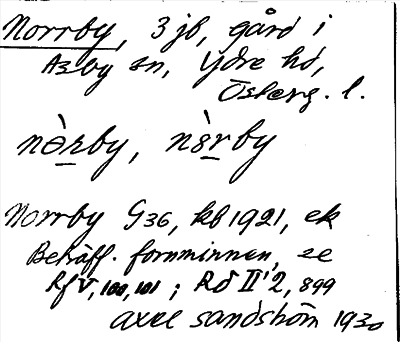 Norrby, 3 jb, gård i
Asby sn, Ydre hd,
Österg. l.
nò̱rby, nò̱rby
Norrby G36, kb 1921, ek
Beträff. fornminnen, se
Rf V, 100, 101 ; Rd II:2, 899
Axel Sandström 1930